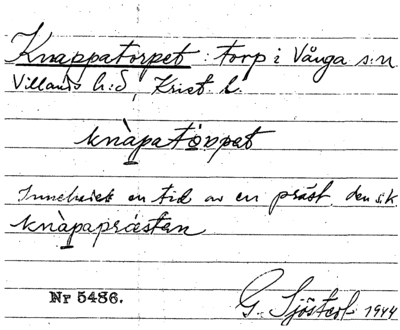 Knappatorpet : torp i Vånga s:n
Villands h:d, Krist. l.
knàpatǒrpet
Innehades en tid av en präst, den s.k.
knàpaprästen
Nr 5486.
G. Sjösted 1944